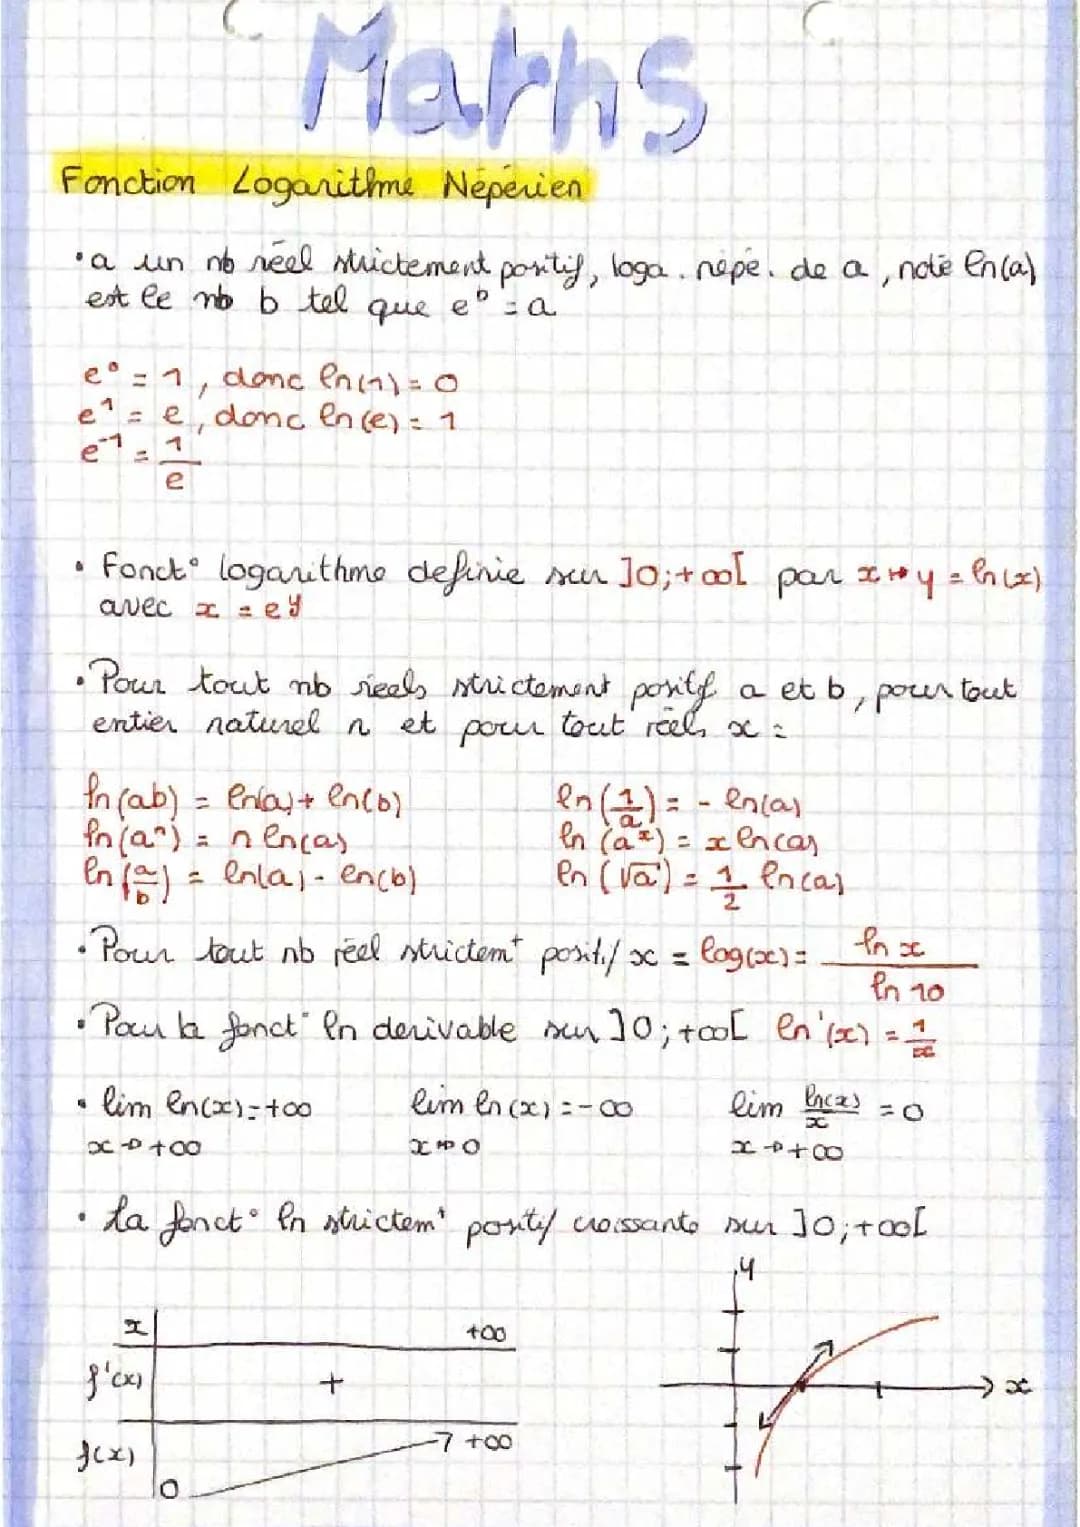 Maths
Fonction Logarithme Népérien
• a un nb réel strictement positif, loga. népé. de a, noté ln(a)
est le nb b tel que e^b = a
e^0 = 1, donc ln(1) = 0
e^1 = e, donc ln(e) = 1
e^-1 = 1/e
• Fonct° logarithme definie sur ]0;+∞[ par x ↦ y = ln(x)
avec x = e^y
• Pour tout nb réels strictement positif a et b, pour tout
entier naturel n et pour tout réels x :
ln(ab) = ln(a) + ln(b)    ln(1/a) = - ln(a)
ln(a^n) = n ln(a)    ln(a^x) = x ln(a)
ln(a/b) = ln(a) - ln(b)    ln(√a) = 1/2 ln(a)
• Pour tout nb réel strictemt positif x = log(x) = ln x / ln 10
• Pour la fonct° ln derivable sur ]0;+∞[ ln'(x) = 1/x
• lim ln(x) = +∞    lim ln(x) = -∞    lim ln(x)/x = 0
x → +∞    x → 0    x → +∞
• La fonct° ln strictemt positif croissante sur ]0;+∞[
y
x    +∞
f'(x)    +
x
f(x)    0    +∞